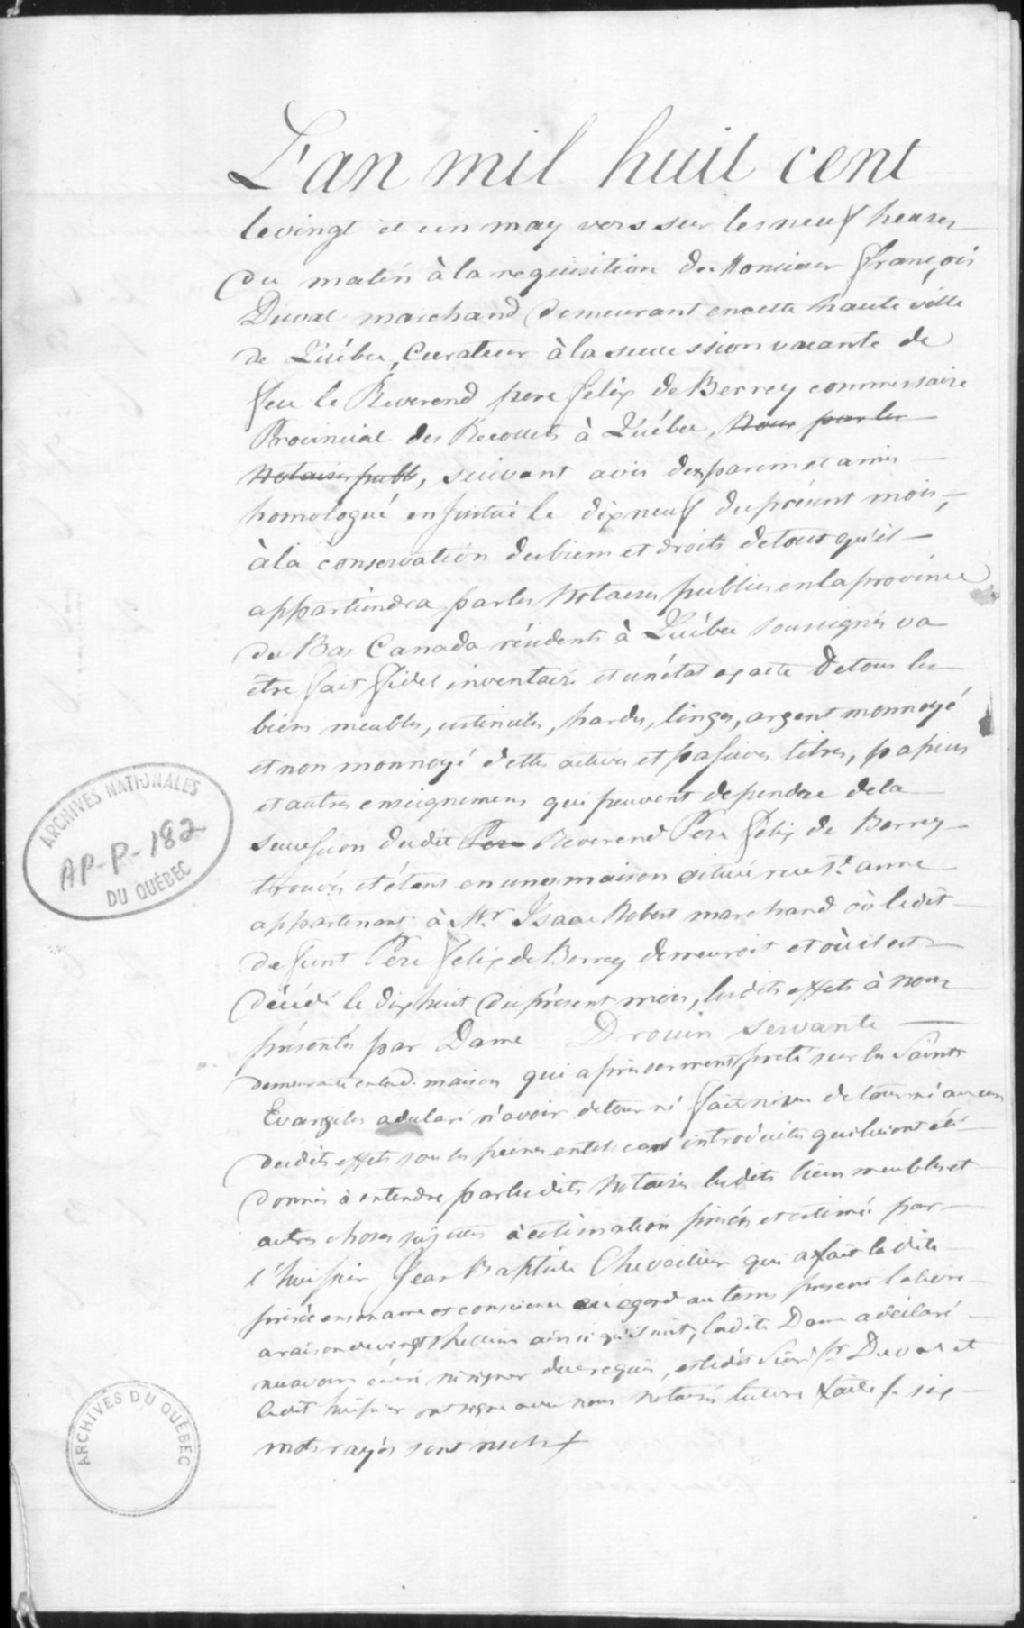 L'an mil huit cent
le vingt et un may vers sur les neuf heures
du matin à la requisition de Monsieur François
Duval marchand demeurant en cette haute ville
de Québec, Curateur à la succession vacante de
feu le Reverend pere felix de Berrey commissaire
Provincial des Recollets à Québec, Nous par les
Notaires publ, suivant avis des parens et amis
homologué en justice le dix neuf du présent mois,
à la conservation des biens et droits de tous qu'il
appartiendra par les Notaires publics en la province
du Bas Canada résidents à Québec soussignés va
être fait fidel inventaire et un état exacte de tous les
biens meubles, ustenciles, hardes, linges, argent monnoyé
et non monnoyé dettes actives et passives titres, papiers
et autres enseignemens qui peuvent dependre de la
succession du dit Pere Reverend Pere félix de Berrey
trouvés et étans en une maison située rue Ste anne
appartenant à Mr. Isaac Robert marchand où le dit
defunt Pere felix de Berrey demeuroit et où il est
décédé le dix huit du présent mois, les dits effets à nous
présentés par Dame Drouin servante
demeurante en lad. maison qui après serment preté sur les Saints
Evangiles a declaré n'avoir detourné fait ni vu detourné aucun
des dits effets sous les peines en tels cas introduites qui lui ont été
donnés à entendre par les dits Notaires les dits biens meubles et
autres choses sujettes à estimation prisés et estimés par
l'huissier Jean Baptiste Chevalier qui a fait la dite
prisée en son ame et conscience eu egard au tems present la livre
a raison de vingt shellins ainsi qu'il suit, la dite Dame a déclaré
ne savoir écrire ni signer de ce requis, et le dit Sieur fr Duval et
le dit huissier ont signé avec nous Notaires lecture faite six
mots rayés sont nuls
ARCHIVES NATIONALES
AP-P-182
DU QUÉBEC
ARCHIVES DU QUÉBEC